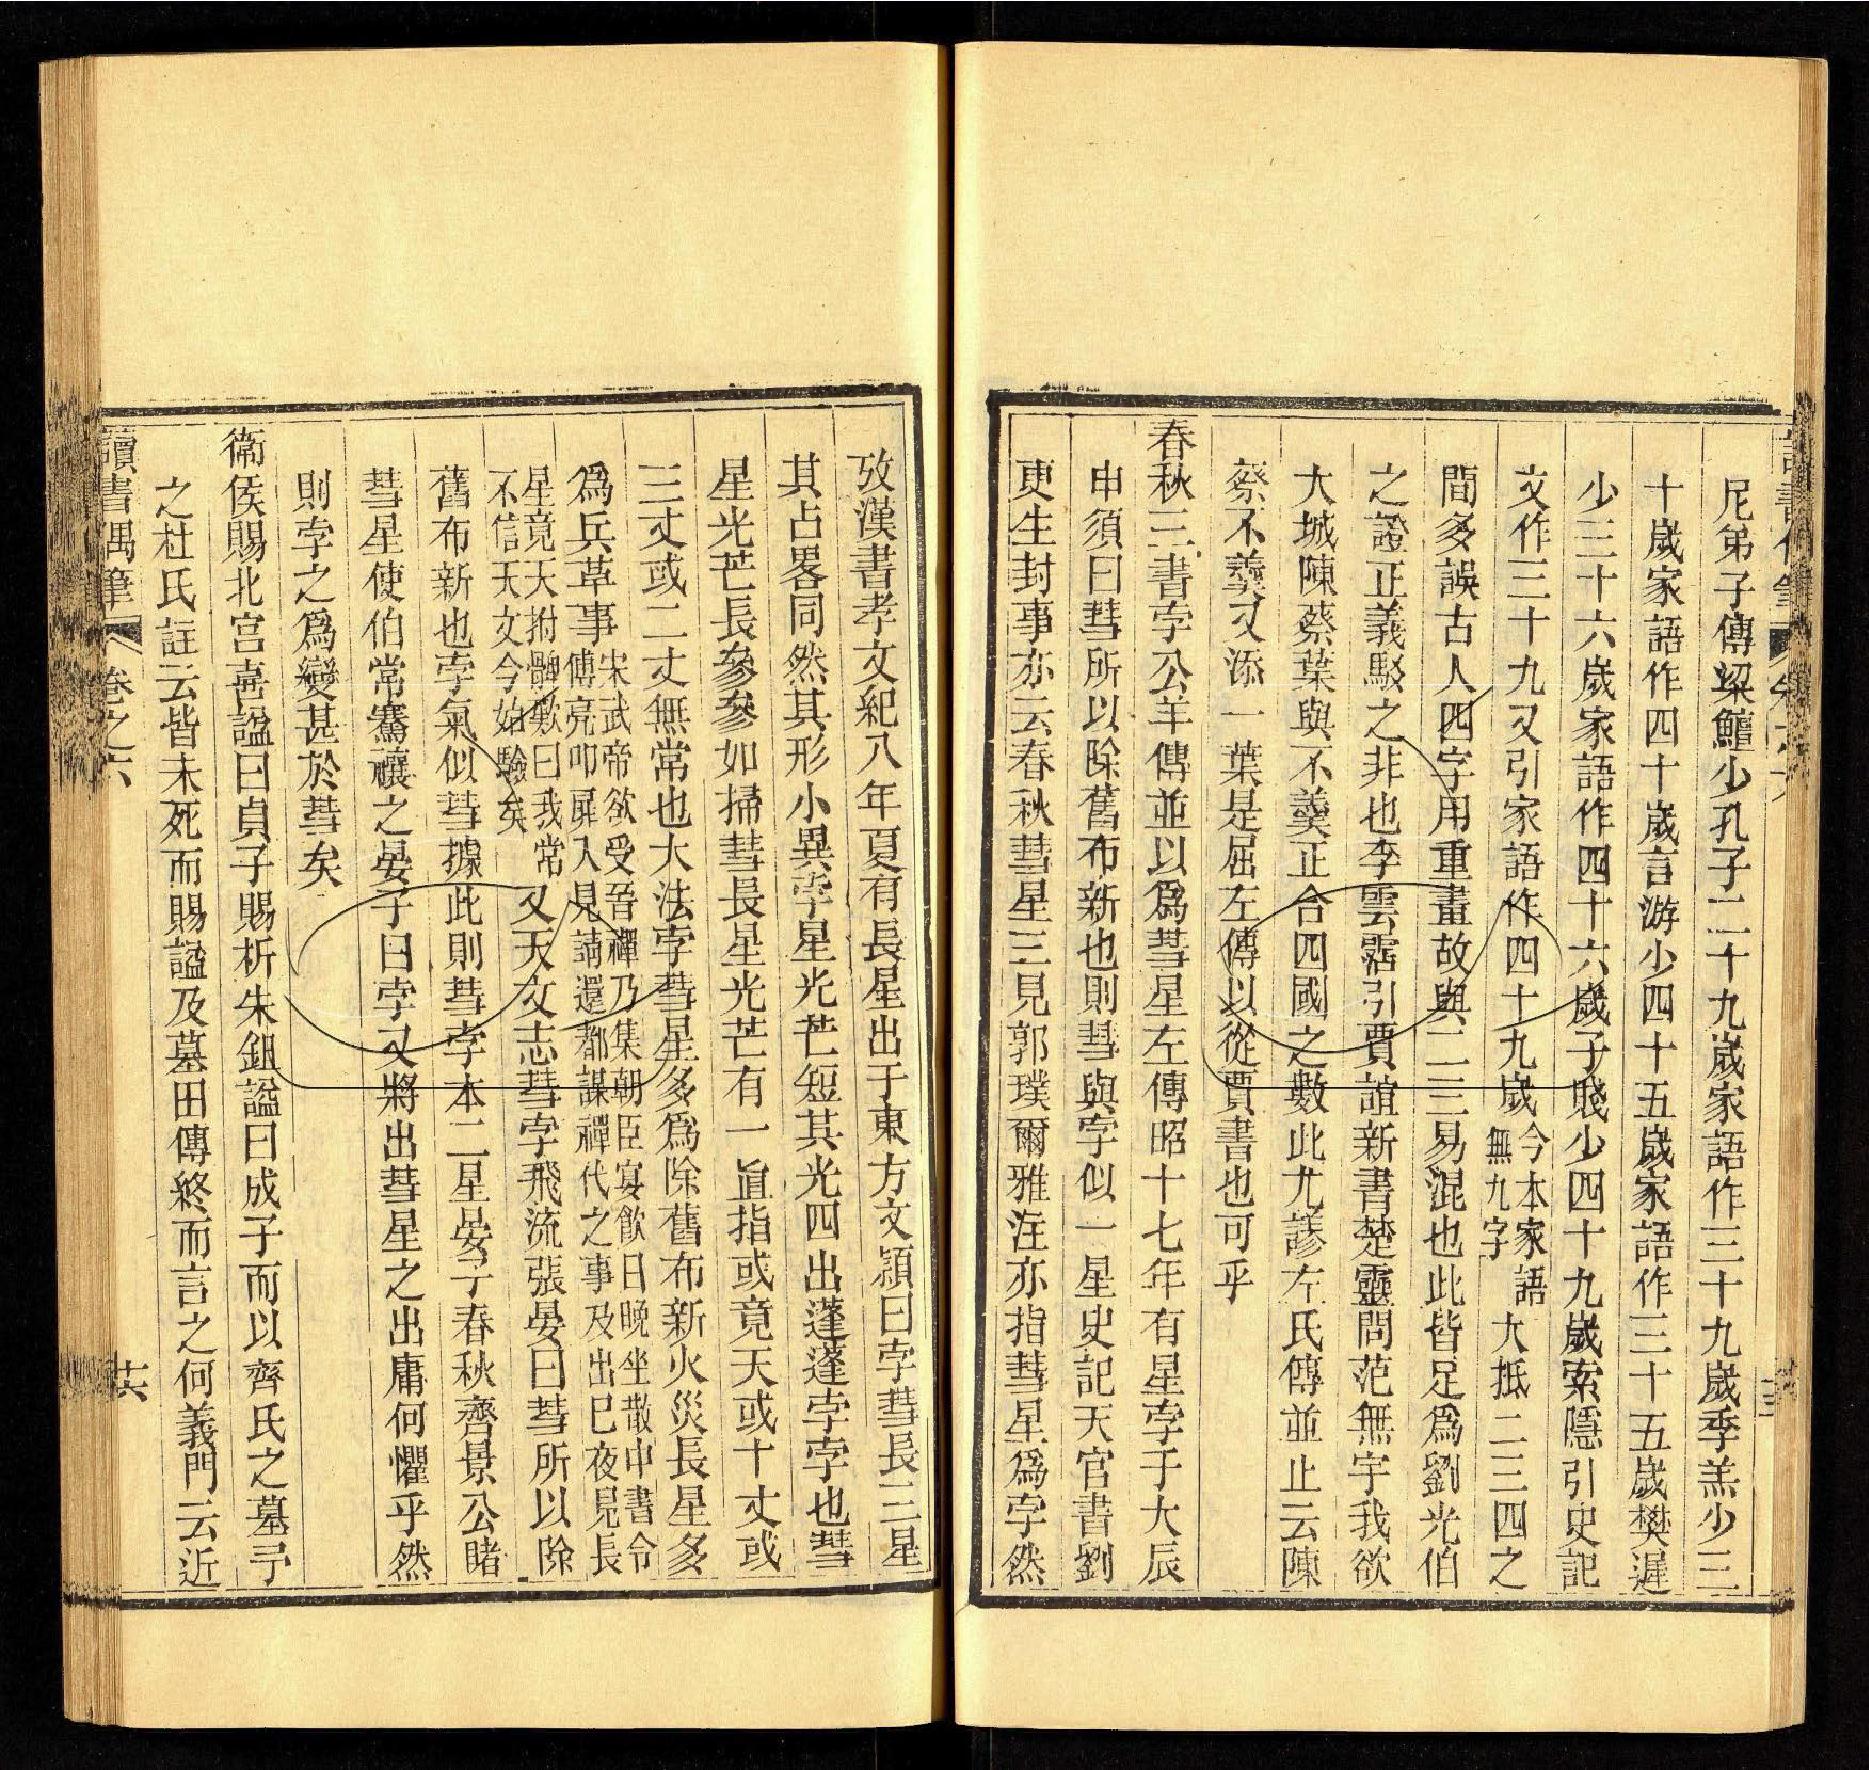 尼弟子傳梁鱣少孔子二十九歲家語作三十九歲季羔少三
十歲家語作四十歲言游少四十五歲家語作三十五歲樊遲
少三十六歲家語作四十六歲子賤少四十九歲索隱引史記
文作三十九又引家語作四十九歲今本家語無九字大抵二三四之
間多誤古人四字用重畫故與二三易混也此皆足爲劉光伯
之證正義駁之非也李雲霑引賈誼新書楚靈問范無宇我欲
大城陳蔡葉與不羹正合四國之數此尤諺左氏傳並止云陳
蔡不羹又添一葉是屈左傳以從賈書也可乎
春秋三書孛公羊傳並以爲彗星左傳昭十七年有星孛于大辰
申須曰彗所以除舊布新也則彗與孛似一星史記天官書劉
更生封事亦云春秋彗星三見郭璞爾雅注亦指彗星爲孛然
攷漢書孝文紀八年夏有長星出于東方文穎曰孛彗長三星
其占畧同然其形小異孛星光芒短其光四出蓬蓬孛孛也彗
星光芒長參參如掃彗長星光芒有一直指或竟天或十丈或
三丈或二丈無常也大法孛彗星多爲除舊布新火災長星多
爲兵革事宋武帝欲受晉禪乃集朝臣宴飲日晚坐散中書令傅亮叩扉入見請還都謀禪代之事及出已夜見長
星竟天拊髀歎曰我常不信天文今始驗矣又天文志彗孛飛流張晏曰彗所以除
舊布新也孛氣似彗據此則彗孛本二星晏子春秋齊景公睹
彗星使伯常騫禳之晏子曰孛又將出彗星之出庸何懼乎然
則孛之爲變甚於彗矣
衞侯賜北宮喜諡曰貞子賜析朱鉏諡曰成子而以齊氏之墓予
之杜氏註云皆未死而賜諡及墓田傳終而言之何義門云近
讀書偶筆 卷之六 廿六